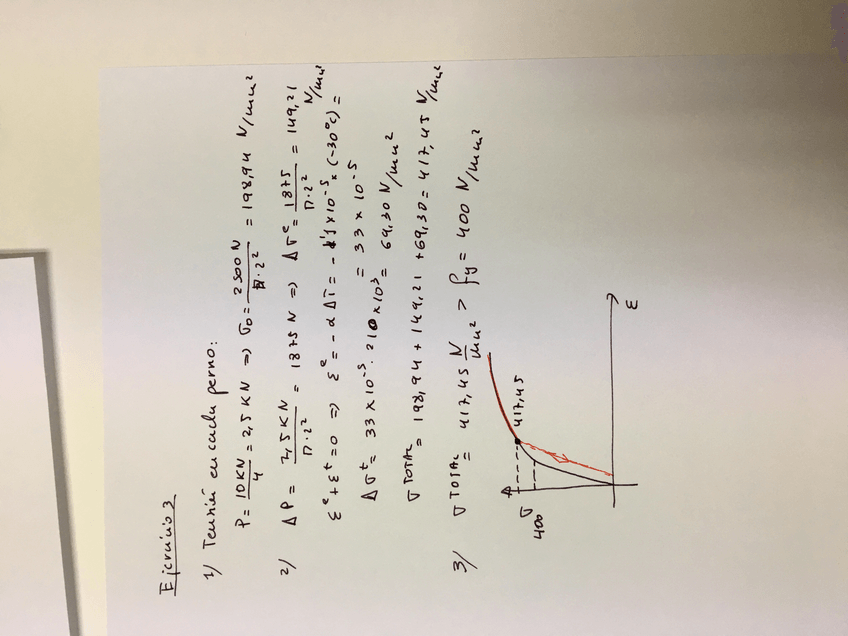 Ejercicio 3
1) Tensión en cada perno:
P = 10KN/4 = 2,5 KN => σ0 = 2500 N/π·2² = 198,94 N/mm²
2) ΔP = 7,5KN/π·2² = 1875 N => Δσᵉ = 1875/π·2² = 149,21 N/mm²
εᵉ + εᵗ = 0 => εᵉ = -αΔT = -1'1×10⁻⁵ × (-30°C) =
= 33 × 10⁻⁵
Δσᵗ = 33×10⁻⁵ · 210×10³ = 69,30 N/mm²
σ TOTAL = 198,94 + 149,21 + 69,30 = 417,45 N/mm²
3) σ TOTAL = 417,45 N/mm² > fy = 400 N/mm²
σ
400
417,45
ε